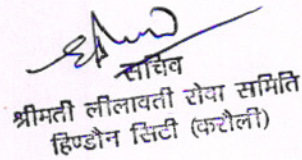 सचिव
श्रीमती लीलावती सेवा समिति
हिण्डौन सिटी (करौली)